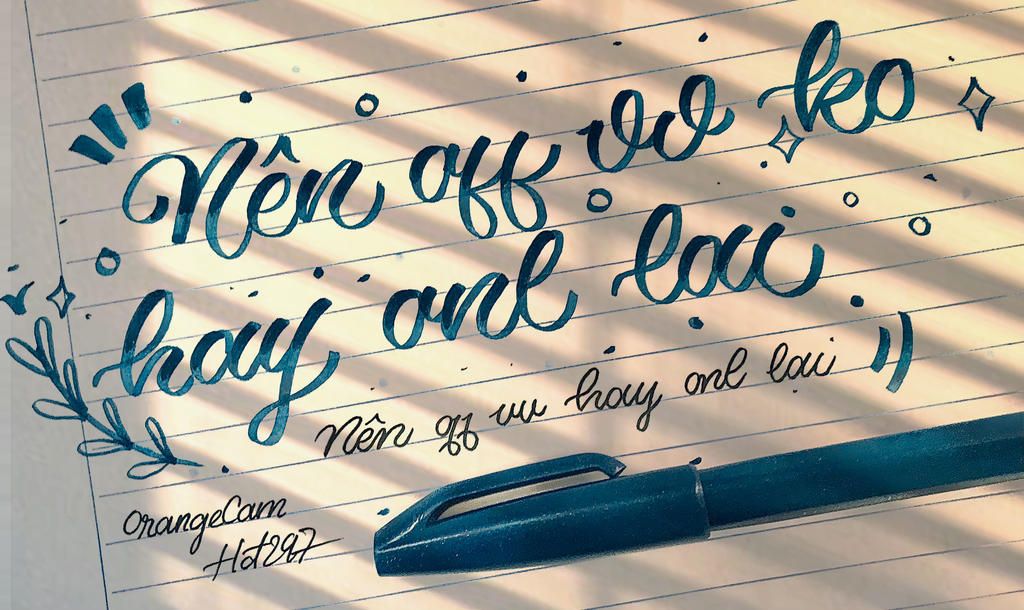 Nên off vơ ko
hay onl lại
Nên off vu hay onl lại
OrangeCam
Hot247